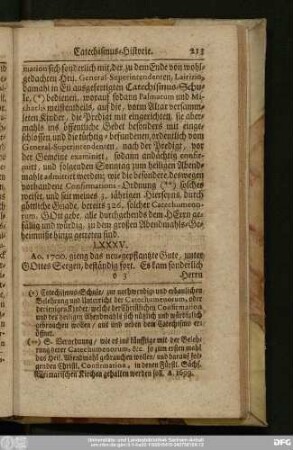 Catechismus-Historie. 213
mation sich sonderlich mit, der, zu dem Ende von wohl-
gedachten Hrn. General-Superintendenten, Lairizio,
damahl in Eil ausgefertigten Catechismus-Schu-
le, (*) bedienen, worauf sodann Palmarum und Mi-
chaelis meistentheils, auf die, vorm Altar versamm-
leten Kinder, die Predigt mit eingerichtet, sie aber-
mahls ins öffentliche Gebet besonders mit einge-
schlossen und die tüchtig-befundenen, ordentlich vom
General-Superintendenten, nach der Predigt, vor
der Gemeine examiniret, sodann andächtig confir-
miret, und folgenden Sonntag zum heiligen Abend-
mahl admittiret werden; wie die besondere deswegen
vorhandene Confirmations-Ordnung (**) solches
weiset, und seit meines 3. jährigen Hierseyns, durch
göttliche Gnade, bereits 326. solcher Catechumeno-
rum. GOtt gebe, alle durchgehends dem HErrn ge-
fällig und würdig, zu dem grossen Abendmahls-Ge-
heimniße hinzu getreten sind.
LXXXV.
Ao. 1700. gieng das neu-gepflantzte Gute, unter
GOttes Seegen, beständig fort. Es kam sonderlich
Herrn
(*) Catechismus-Schule, zur nothwendig und erbaulichen
Belehrung und Unterricht der Catechumenorum, oder
derienigen Kinder, welche der Christlichen Confirmation
und des heiligen Abendmahls sich nützlich und würdiglich
gebrauchen wollen, aus und neben dem Catechismo er-
öffnet.
(**) S. Verordnung, wie es ins künfftige mit der Beleh-
rung derer Catechumenorum, &c. so zum ersten mahl
des Heil. Abendmahl gebrauchen wollen, und darauf fol-
genden Christl. Confirmation, in denen Fürstl. Sächs.
Weimarischen Kirchen gehalten werden soll. A. 1699.